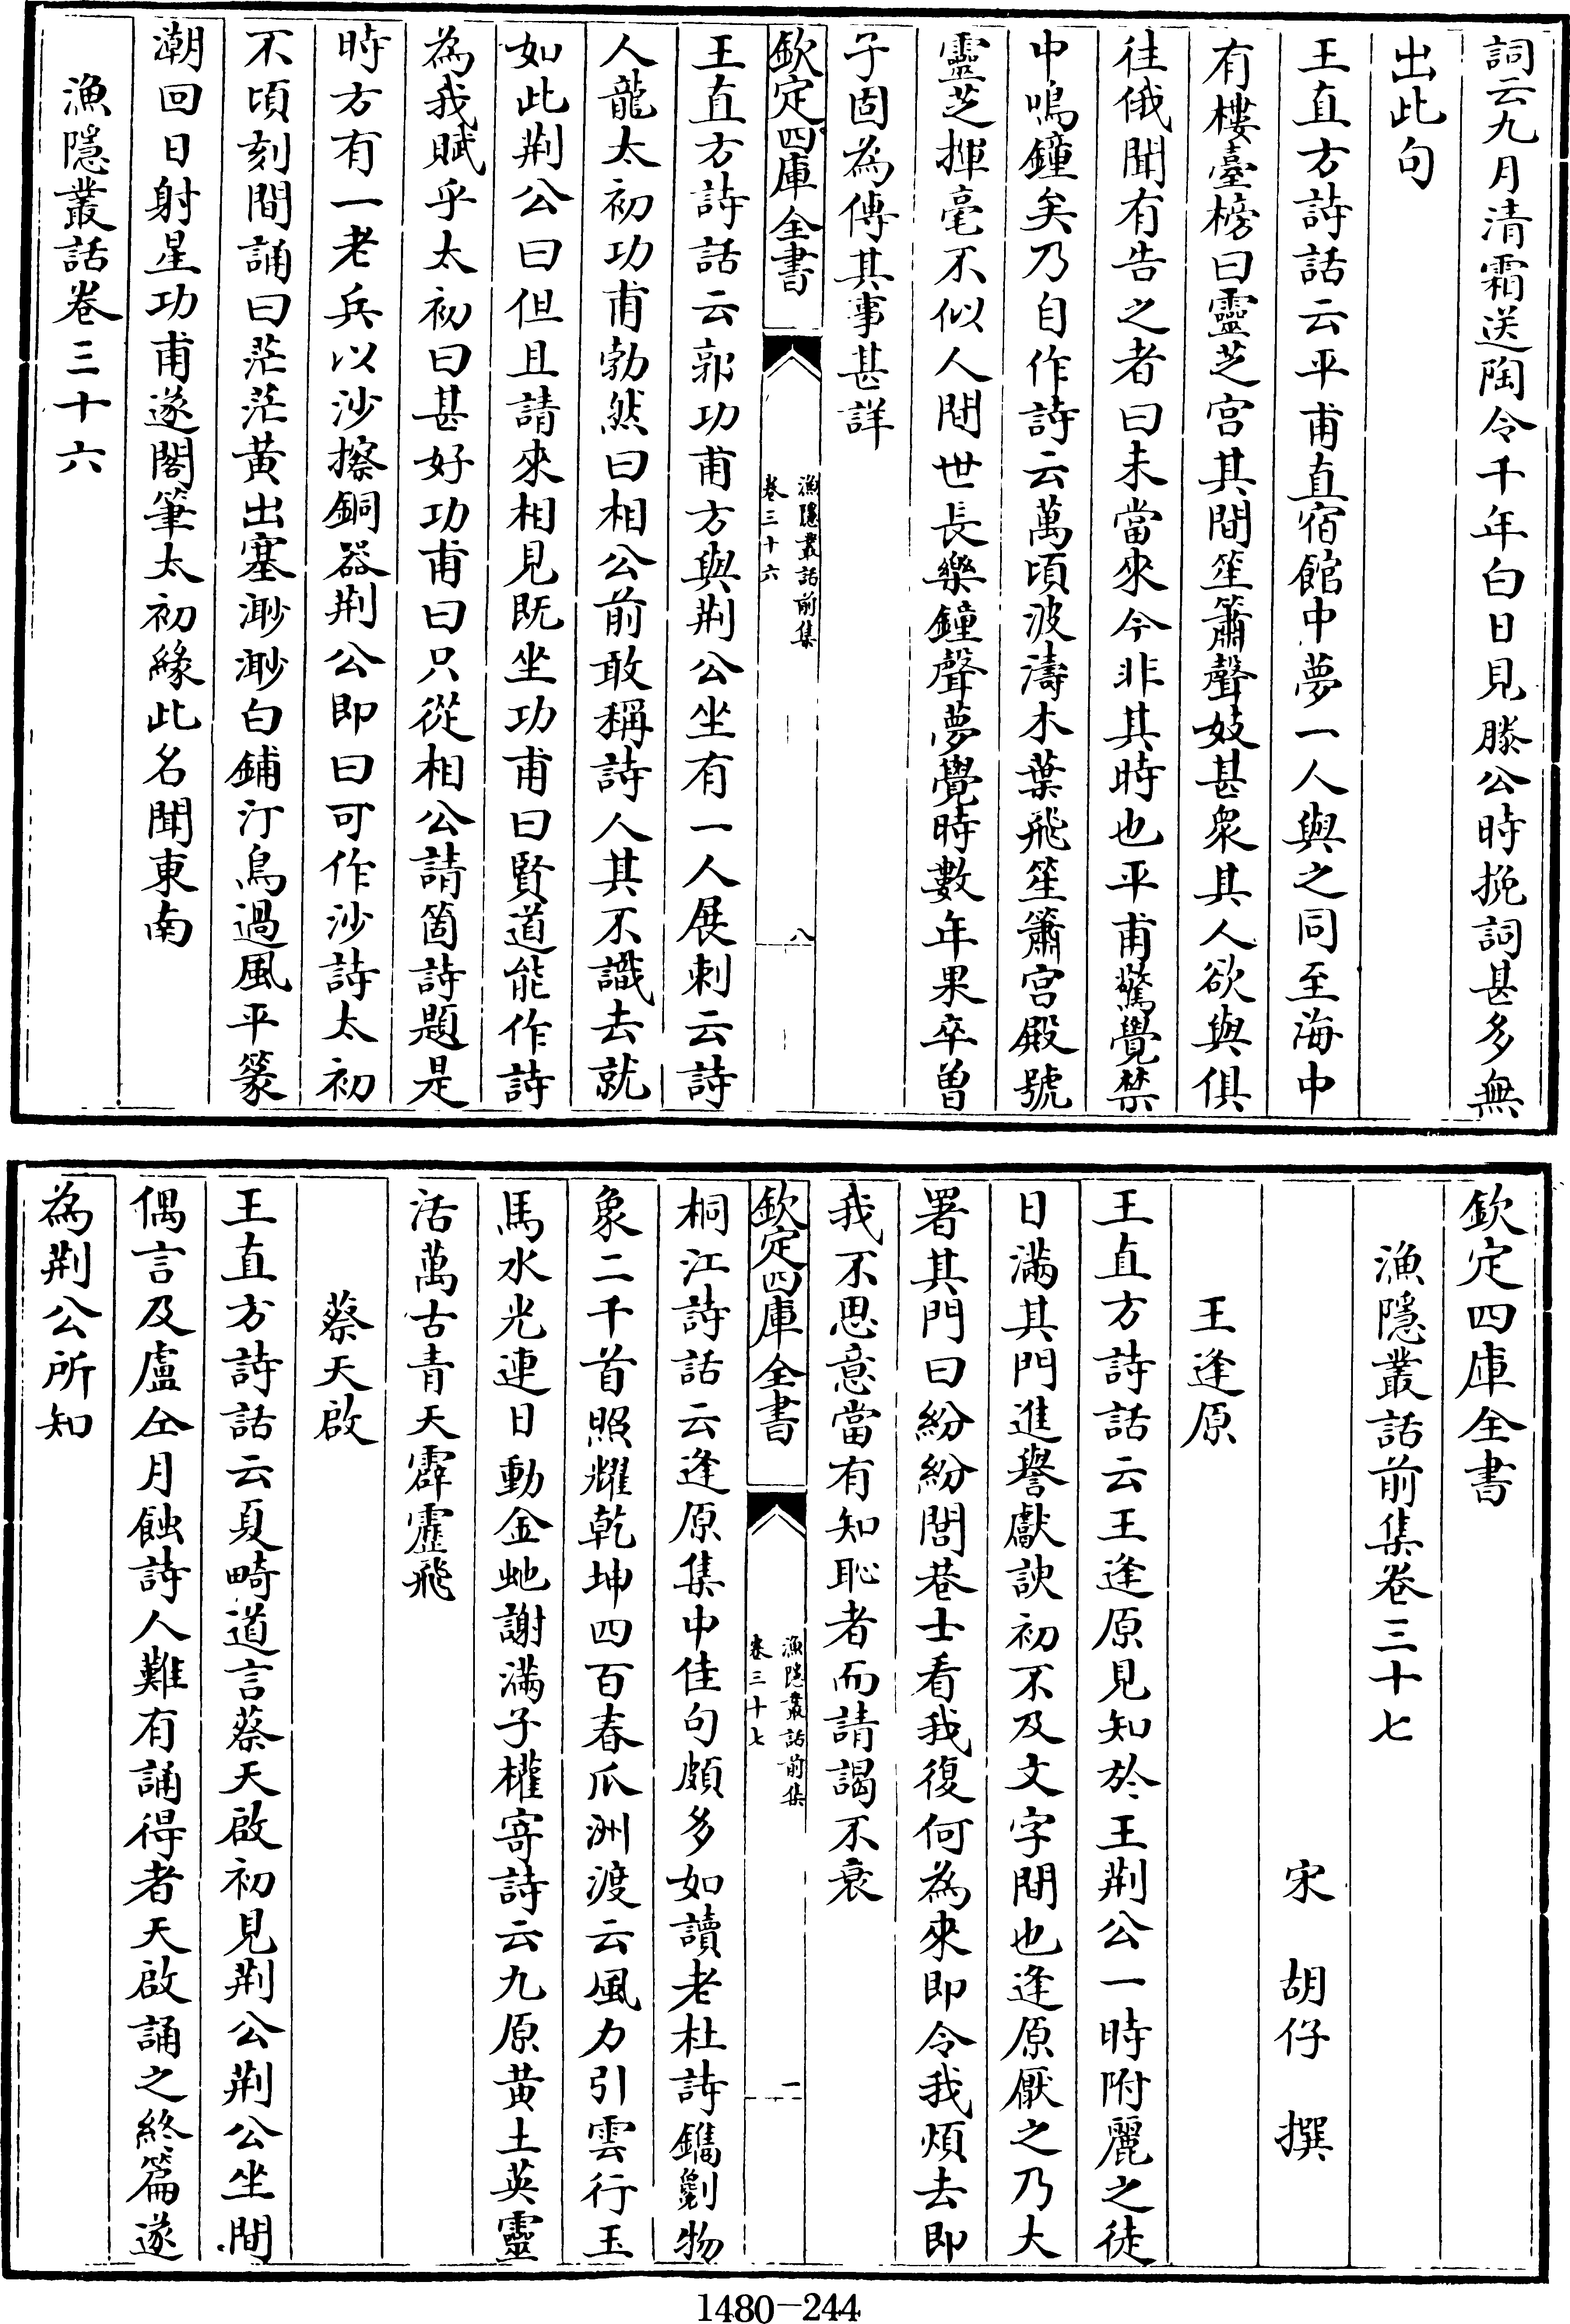 詞云九月清霜送陶令千年白日見滕公時挽詞甚多無
出此句
王直方詩話云平甫直宿館中夢一人與之同至海中
有樓臺榜曰靈芝宫其間笙簫聲妓甚衆其人欲與俱
往俄聞有告之者曰未當來今非其時也平甫驚覺禁
中鳴鐘矣乃自作詩云萬頃波濤木葉飛笙簫宫殿號
靈芝揮毫不似人間世長樂鐘聲夢覺時數年果卒曽
子固為傳其事甚詳
欽定四庫全書
漁隱叢話前集
卷三十六
八
王直方詩話云郭功甫方與荆公坐有一人展刺云詩
人龍太初功甫勃然曰相公前敢稱詩人其不識去就
如此荆公曰但且請來相見既坐功甫曰賢道能作詩
為我賦乎太初曰甚好功甫曰只從相公請箇詩題是
時方有一老兵以沙擦銅器荆公即曰可作沙詩太初
不頃刻間誦曰茫茫黄出塞渺渺白鋪汀鳥過風平篆
潮回日射星功甫遂閣筆太初緣此名聞東南
漁隱叢話卷三十六
欽定四庫全書
漁隱叢話前集卷三十七
宋 胡仔 撰
王逢原
王直方詩話云王逢原見知於王荆公一時附麗之徒
日滿其門進譽獻諛初不及文字間也逢原厭之乃大
署其門曰紛紛閭巷士看我復何為來即令我煩去即
我不思意當有知恥者而請謁不衰
欽定四庫全書
漁隱叢話前集
卷三十七
一
桐江詩話云逢原集中佳句頗多如讀老杜詩鐫劖物
象二千首照耀乾坤四百春瓜洲渡云風力引雲行玉
馬水光連日動金虵謝滿子權寄詩云九原黄土英靈
活萬古青天霹靂飛
蔡天啟
王直方詩話云夏畸道言蔡天啟初見荆公荆公坐間
偶言及盧仝月蝕詩人難有誦得者天啟誦之終篇遂
為荆公所知
1480-244